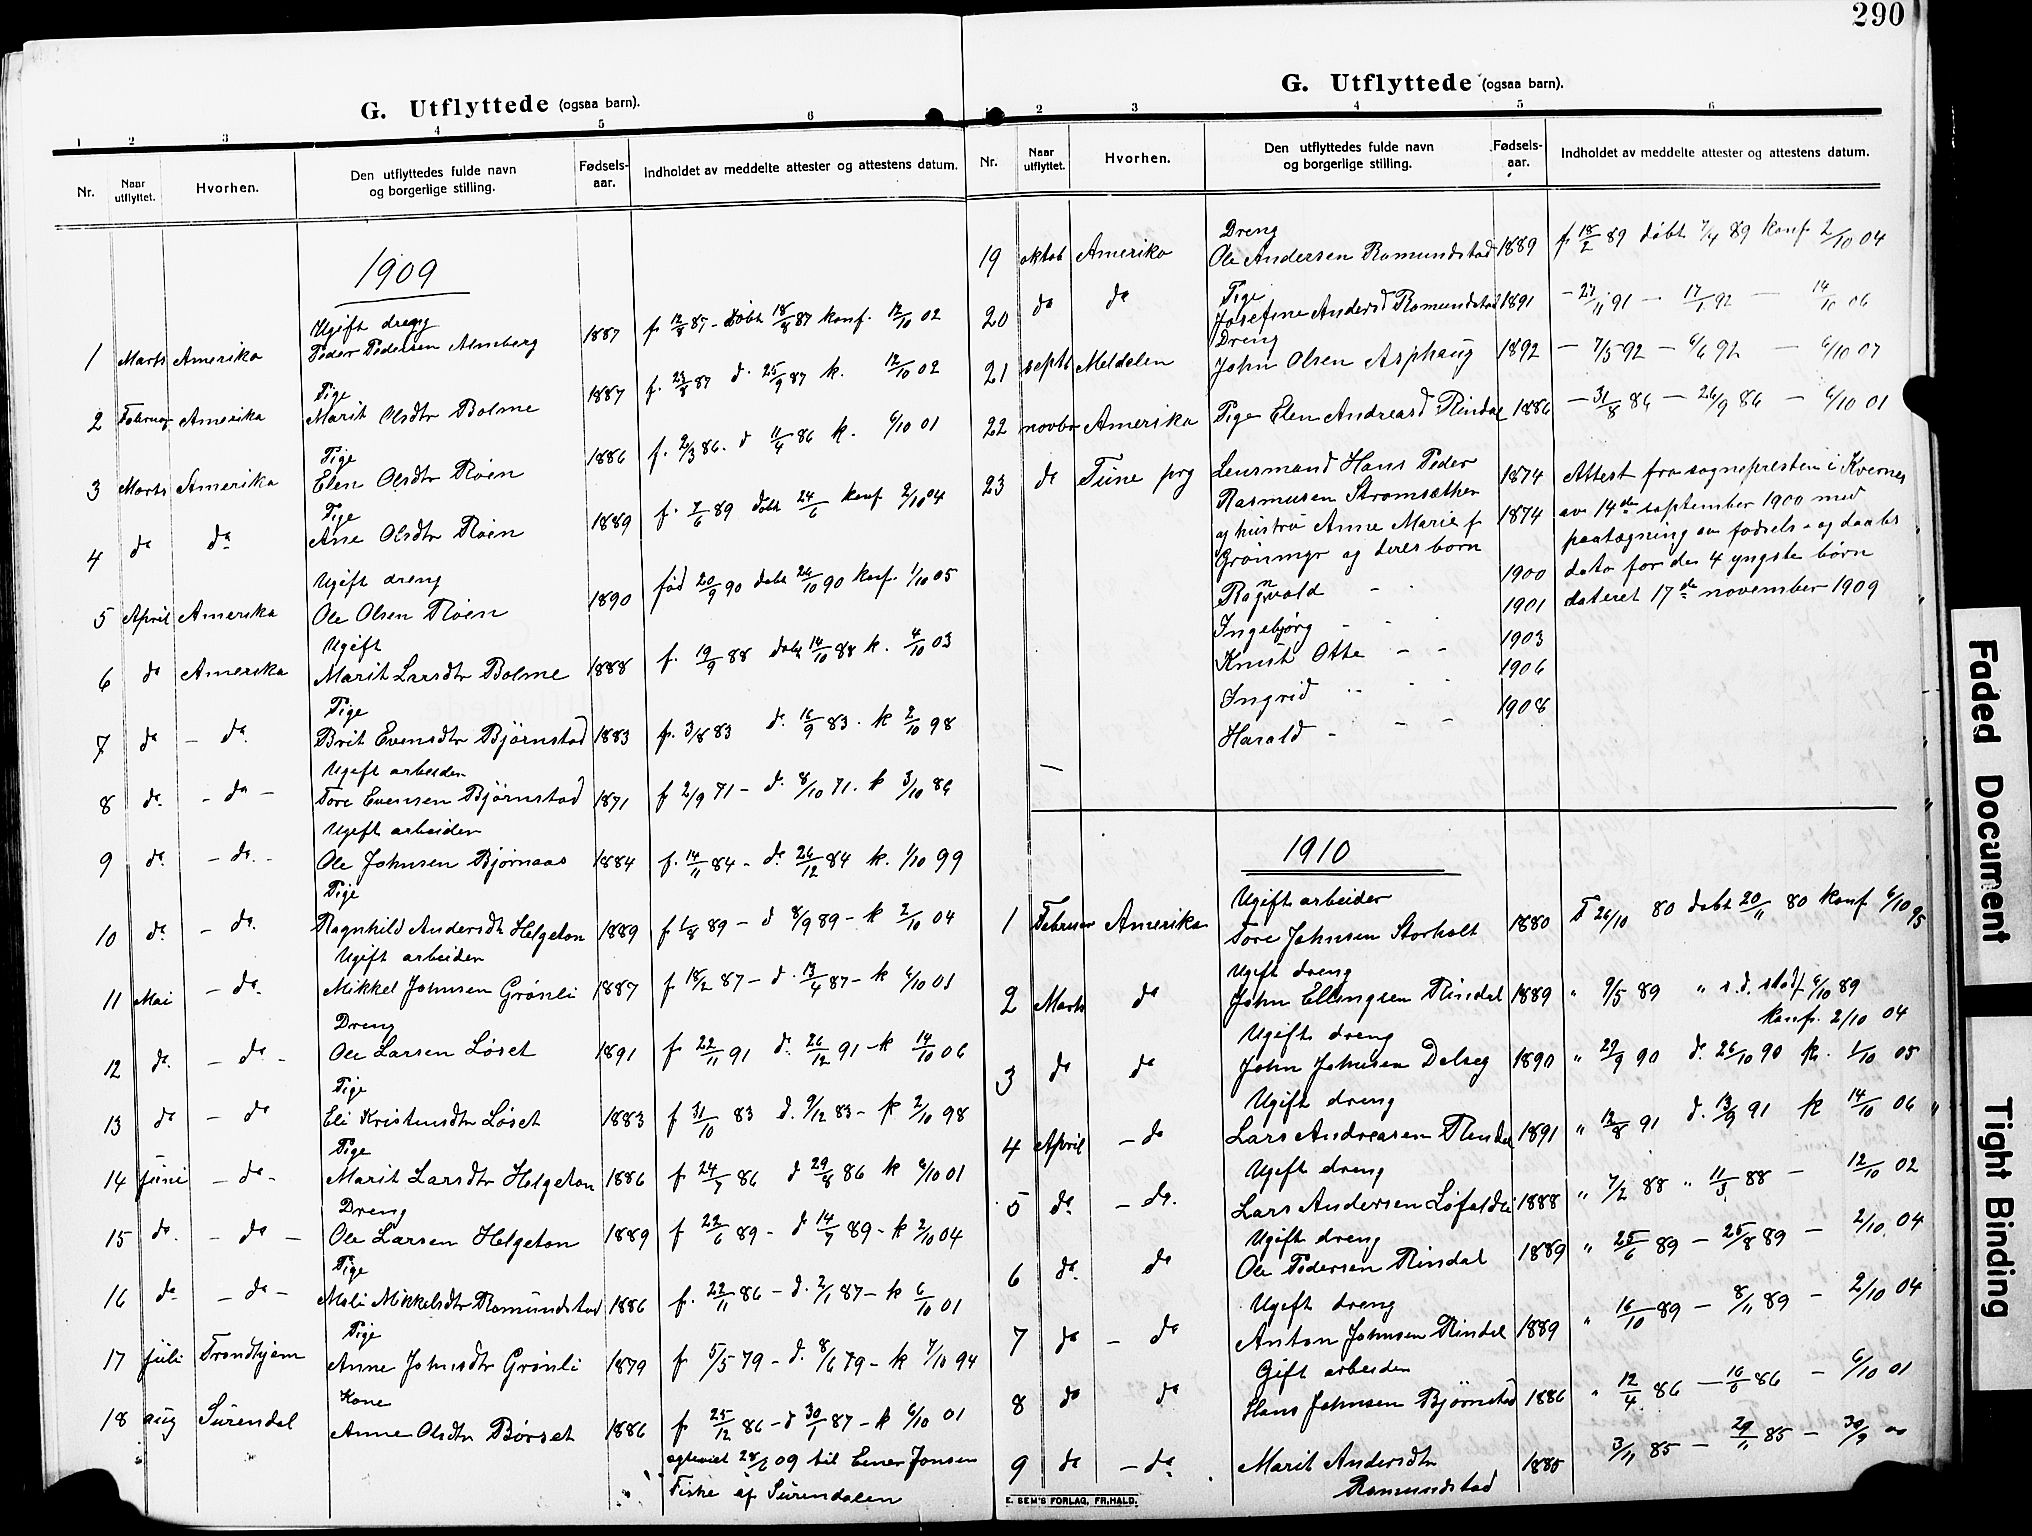 290
G. Utflyttede (ogsaa barn).
1 2 3 4 5 6
Nr. Naar utflyttet. Hvorhen. Den utflyttedes fulde navn og borgerlige stilling. Fødsels-aar. Indholdet av meddelte attester og attestens datum.
1909
Ugift dreng
1 Marts Amerika Peder Pedersen Almberg 1887 f. 12/8 87 - døbt 18/9 87 konf. 12/10 02
Pige
2 Februar Amerika Marit Olsdtr Bolme 1887 f. 23/8 87 d. 25/9 87 k. 12/10 02
Pige
3 Marts Amerika Elen Olsdtr Røen 1886 f. 2/3 86. d 11/4 86 k. 6/10 01
Pige
4 do do Ane Olsdtr Røen 1889 f. 7/6 89 døbt 24/6 konf 2/10 04
Ugift dreng
5 April Amerika Ole Olsen Røen 1890 fød 20/9 90 døbt 26/10 90 konf. 1/10 05
Ugift
6 do Amerika Marit Larsdtr Bolme 1888 f. 19/9 88 døbt 14/10 88 k. 4/10 03
Pige
7 do - do. Brit Evensdtr Bjørnstad 1883 f. 3/8 83 d. 16/9 83. k 2/10 98
Ugift arbeider
8 do. - do - Tore Evensen Bjørnstad 1871 f 2/9 71 - d. 8/10 71. k 3/10 86
Ugift arbeider
9 do. - do. - Ole Johnsen Bjørnaas 1884 f. 14/11 84 - d. 26/12 84 k. 1/10 99
Pige
10 do. - do. Ragnhild Andersdt Helgeton 1889 f 1/8 89 - d 8/9 89 - k 2/10 04
Ugift arbeider
11 Mai - do. Mikkel Johnsen Grønli 1887 f 18/2 87 - d. 13/4 87 - k 6/10 01
Dreng
12 do. - do - Ole Larsen Løset 1891 f 22/11 91 d. 26/12 91 - k 14/10 06
Pige
13 do - do Eli Kristensdtr Løset 1883 f 31/10 83 d. 9/12 83 - k 2/10 98
Pige
14 Juni - do - Marit Larsdtr Helgeton 1886 f 24/7 86 d 29/8 86 k 6/10 01
Dreng
15 do. - do - Ole Larsen Helgeton 1889 f 22/6 89 - d 14/7 89 - k 2/10 04
Pige
16 do - do - Mali Mikkelsdtr Romundstad 1886 f. 22/11 86 - d. 2/1 87 - k 6/10 01
Pige
17 Juli Trondhjem Anne Johnsdtr Grønli 1879 f 5/5 79 - d. 8/6 79 - k 7/10 94
Kone
18 aug Surendal Anne Olsdtr Børset 1886 f 25/12 86 - d 30/1 87 - k 6/10 01
09 til Einar Jonsen
Fiske af Surendalen
G. Utflyttede (ogsaa barn).
2 3 4 5 6
Nr. Naar utflyttet. Hvorhen. Den utflyttedes fulde navn og borgerlige stilling. Fødsels-aar. Indholdet av meddelte attester og attestens datum.
Dreng
19 oktob Amerika Ole Andersen Romundstad 1889 f 18/2 89 døbt 7/4 89 konf 2/10 04
Pige
20 do do Josefine Andersd Romundstad 1891 - 27/11 91 - 17/1 92 - 14/10 06
Dreng
21 septb Meldalen John Olsen Asphaug 1892 - 7/5 92 - 6/6 92 - 6/10 07
22 novbr Amerika Pige Elen Andreasd Rindal 1886 - 31/8 86 - 26/9 86 - 6/10 01
23 do Tune prg Lensmand Hans Peder 1874 Attest fra sognepresten i Kvernes
Rasmusen Strømsæther 1874 av 14de september 1900 med
og hustru Anne Marie f paategning av fødsels- og daabs
Grønmyr og deres børn data for de 4 yngste børn
Ragnvald - 1900 dateret 17de november 1909
Ingebjørg - - 1901
Knut Otte - - 1903
Ingrid 1906
Harald - 1908
1910
Ugift arbeider
1 Februar Amerika Tore Johnsen Storholt 1880 F 26/10 80 døbt 20/11 80 konf 6/10 95
Ugift dreng
2 Marts do John Ellingsen Rindal 1889 " 9/5 89 " s.d. stadf 6/10 89
konf. 2/10 04
Ugift dreng
3 do do John Johnsen Dalseg 1890 " 29/9 90 d. 26/10 90 k. 1/10 05
Ugift dreng
4 April - do Lars Andreasen Rindal 1891 " 12/8 91 d. 13/9 91 k 14/10 06
Ugift dreng
5 do - do. Lars Andersen Løfaldli 1888 " 7/2 88 " 11/3 88 - 12/10 02
Ugift dreng
6 do. do Ole Pedersen Rindal 1889 " 25/6 89 - 25/8 89 - 2/10 04
Ugift dreng
7 do - do Anton Johnsen Rindal 1889 " 16/10 89 - 8/11 89 - 2/10 04
Gift arbeider
8 do do Hans Johnsen Bjørnstad 1886 " 12/4 86 - 16/5 86 - 6/10 01
9 do - do Marit Andersdtr 1885 3/11 85 - 29/11 85 - 30/9 00
Romundstad
E. SEM'S FORLAG, FR.HALD.
Faded Document
Tight Binding